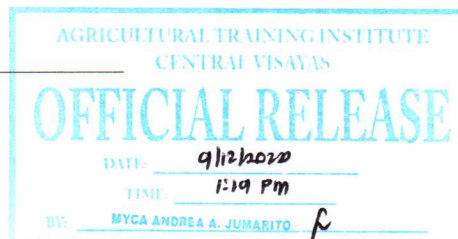 AGRICULTURAL TRAINING INSTITUTE
CENTRAL VISAYAS
OFFICIAL RELEASE
DATE: 9/12/2020
TIME: 1:19 PM
BY: MYCA ANDREA A. JUMARITO